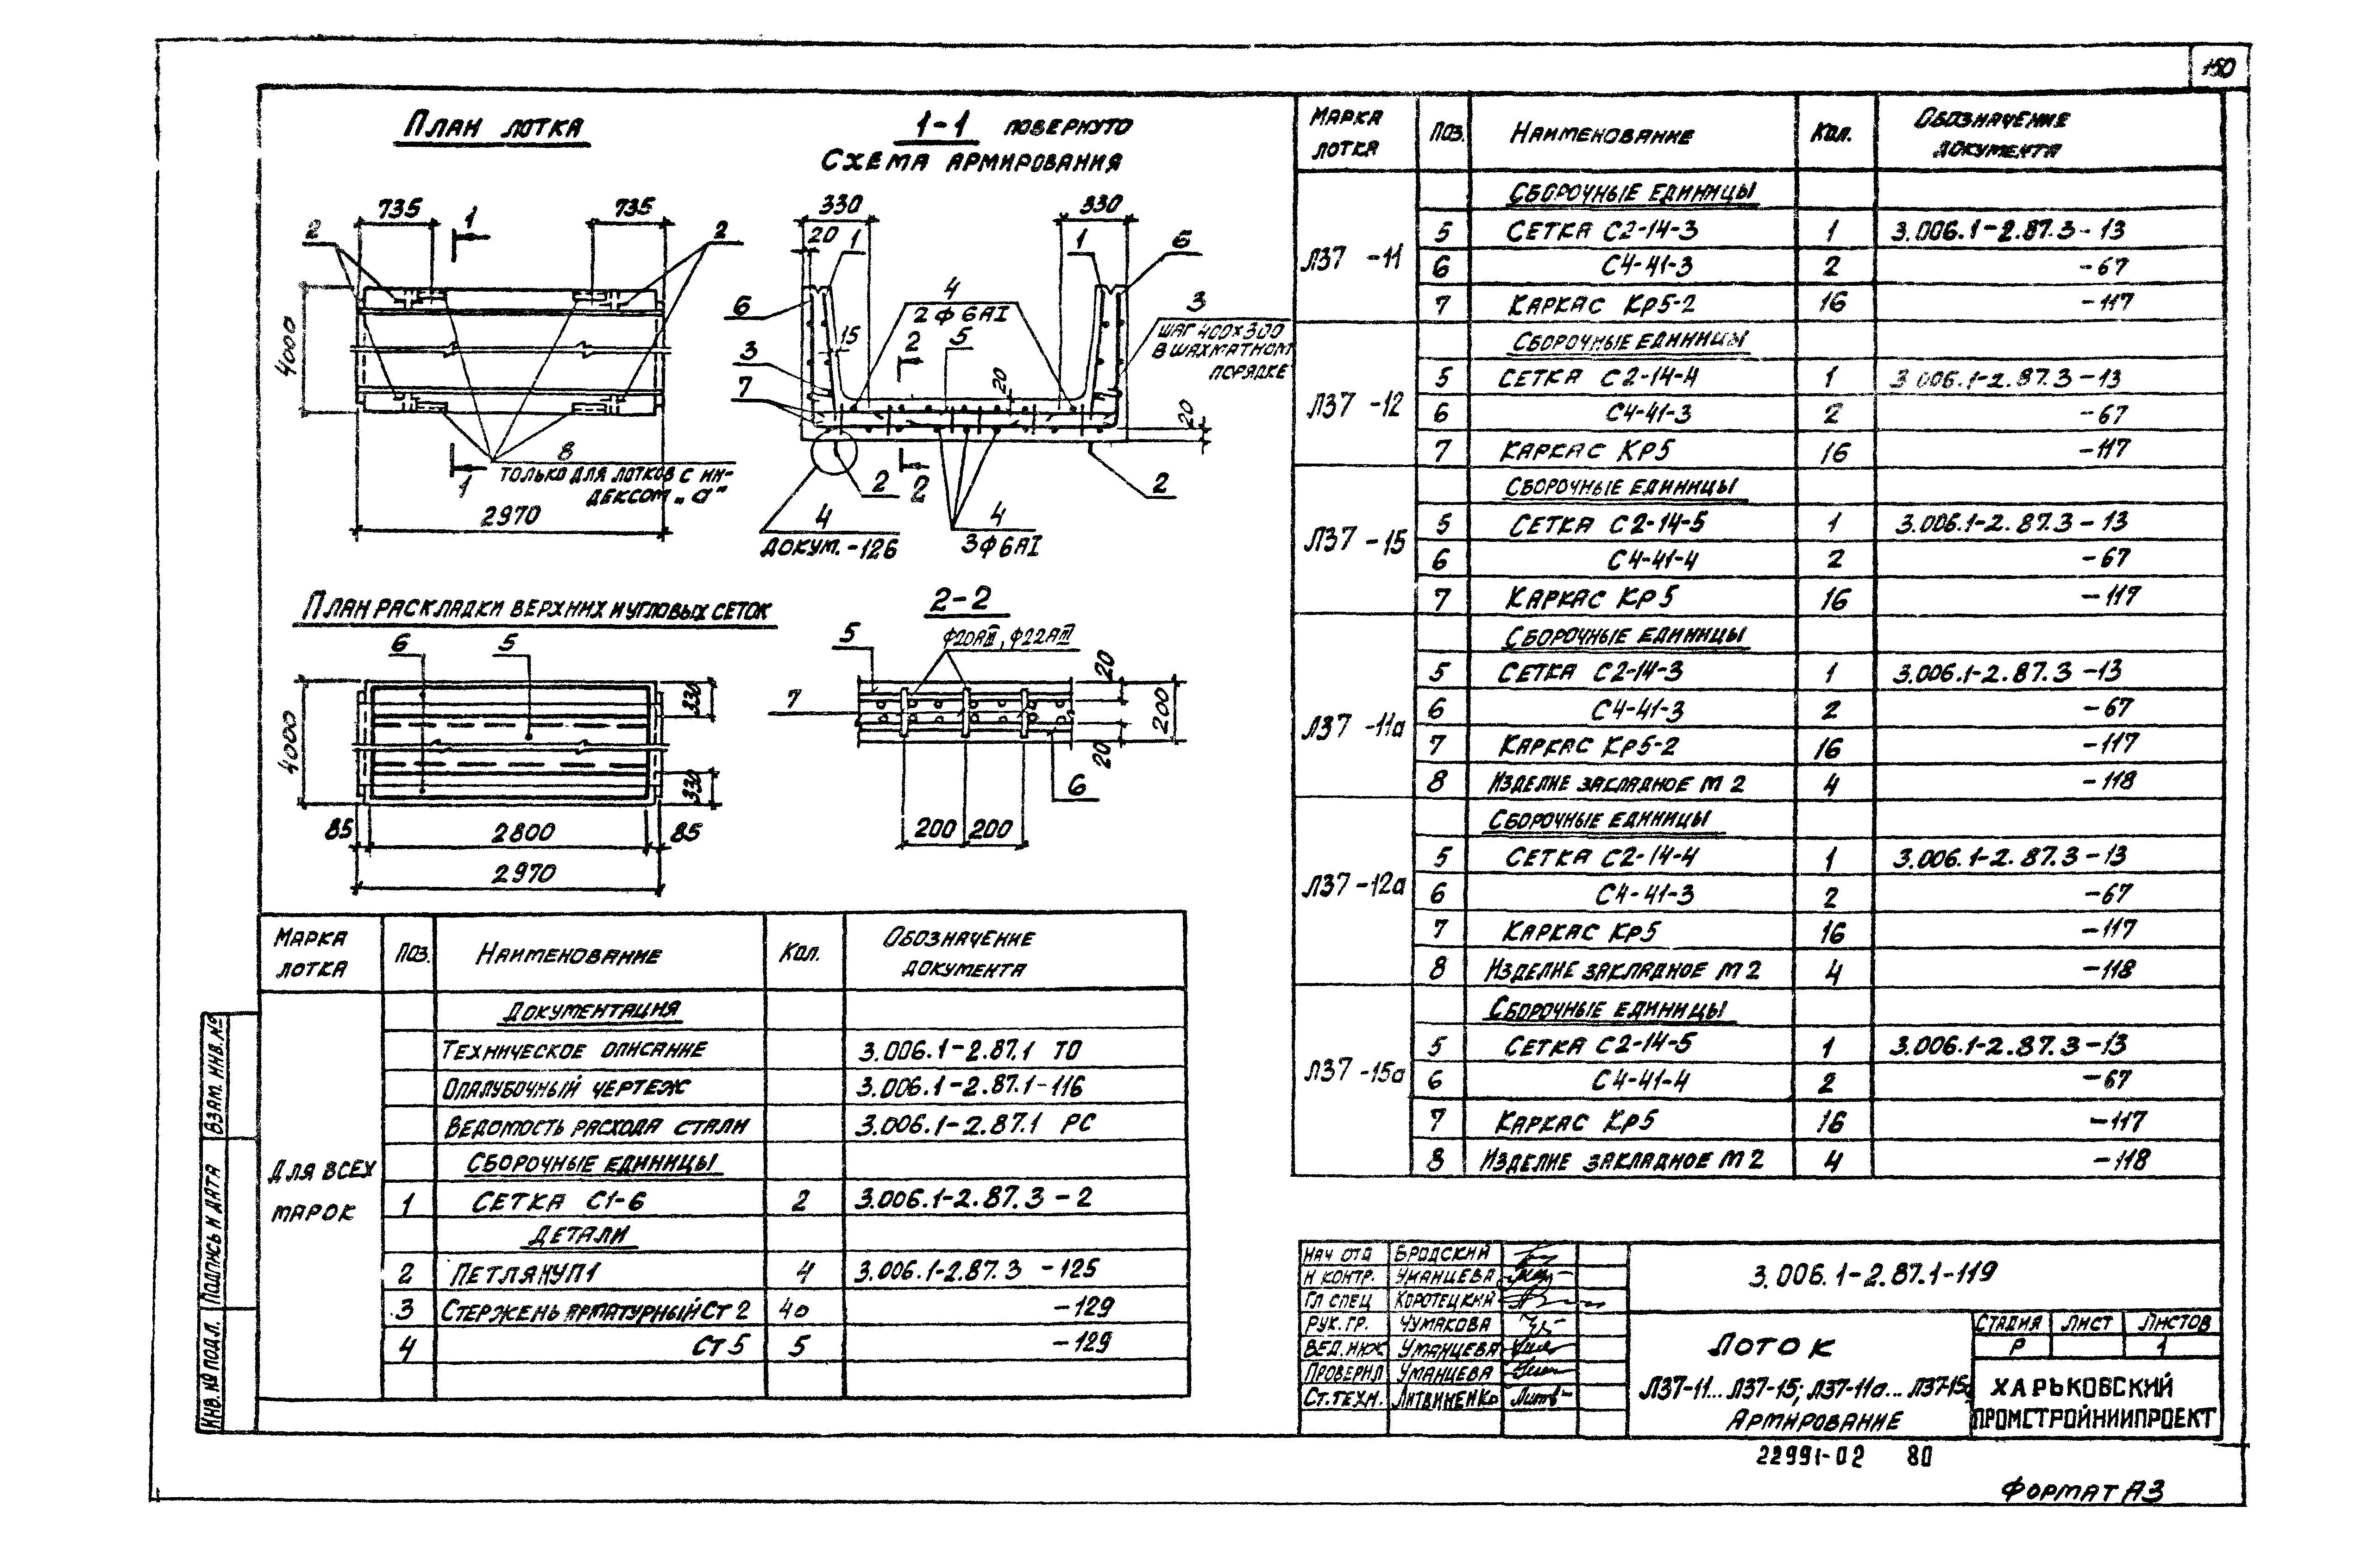 150
План лотка
735
735
1
2
2
4000
8
только для лотков с ин-
дексом „а"
1
2970
1-1 повернуто
Схема армирования
330
330
20
1
1
6
4
2ф6АI
6
3
шаг 400х300
в шахматном
порядке
2
5
15
3
7
20
20
2
2
2
4
4
докум. -126
3ф6АI
План раскладки верхних и угловых сеток
6
5
4000
330
330
85
2800
85
2970
2-2
5
ф20АIII, ф22АIII
7
20
200
20
6
200
200
Марка лотка | Поз. | Наименование | Кол. | Обозначение документа
Для всех марок
Документация
Техническое описание 3.006.1-2.87.1 ТО
Опалубочный чертеж 3.006.1-2.87.1-116
Ведомость расхода стали 3.006.1-2.87.1 РС
Сборочные единицы
1 Сетка С1-6 2 3.006.1-2.87.3-2
Детали
2 Петля УП1 4 3.006.1-2.87.3 -125
3 Стержень арматурный Ст 2 40 -129
4 Ст 5 5 -129
Марка лотка | Поз. | Наименование | Кол. | Обозначение документа
Л37 -11
Сборочные единицы
5 Сетка С2-14-3 1 3.006.1-2.87.3-13
6 С4-41-3 2 -67
7 Каркас Кр5-2 16 -117
Л37 -12
Сборочные единицы
5 Сетка С2-14-4 1 3.006.1-2.87.3-13
6 С4-41-3 2 -67
7 Каркас Кр5 16 -117
Л37 -15
Сборочные единицы
5 Сетка С2-14-5 1 3.006.1-2.87.3-13
6 С4-41-4 2 -67
7 Каркас Кр5 16 -117
Л37 -11а
Сборочные единицы
5 Сетка С2-14-3 1 3.006.1-2.87.3-13
6 С4-41-3 2 -67
7 Каркас Кр5-2 16 -117
8 Изделие закладное М2 4 -118
Л37 -12а
Сборочные единицы
5 Сетка С2-14-4 1 3.006.1-2.87.3-13
6 С4-41-3 2 -67
7 Каркас Кр5 16 -117
8 Изделие закладное М2 4 -118
Л37 -15а
Сборочные единицы
5 Сетка С2-14-5 1 3.006.1-2.87.3-13
6 С4-41-4 2 -67
7 Каркас Кр5 16 -117
8 Изделие закладное М2 4 -118
Нач отд Бродский
Н контр. Уманцева
Гл спец Коротецкий
Рук. гр. Чумакова
Вед. инж Уманцева
Проверил Уманцева
Ст. техн. Литвиненко
3.006.1-2.87.1-119
Лоток
Л37-11...Л37-15; Л37-11а...Л37-15а
Армирование
Стадия Лист Листов
Р 1
Харьковский
Промстройниипроект
22991-02 80
Формат А3
Взам. инв. №
Подпись и дата
Инв. № подл.